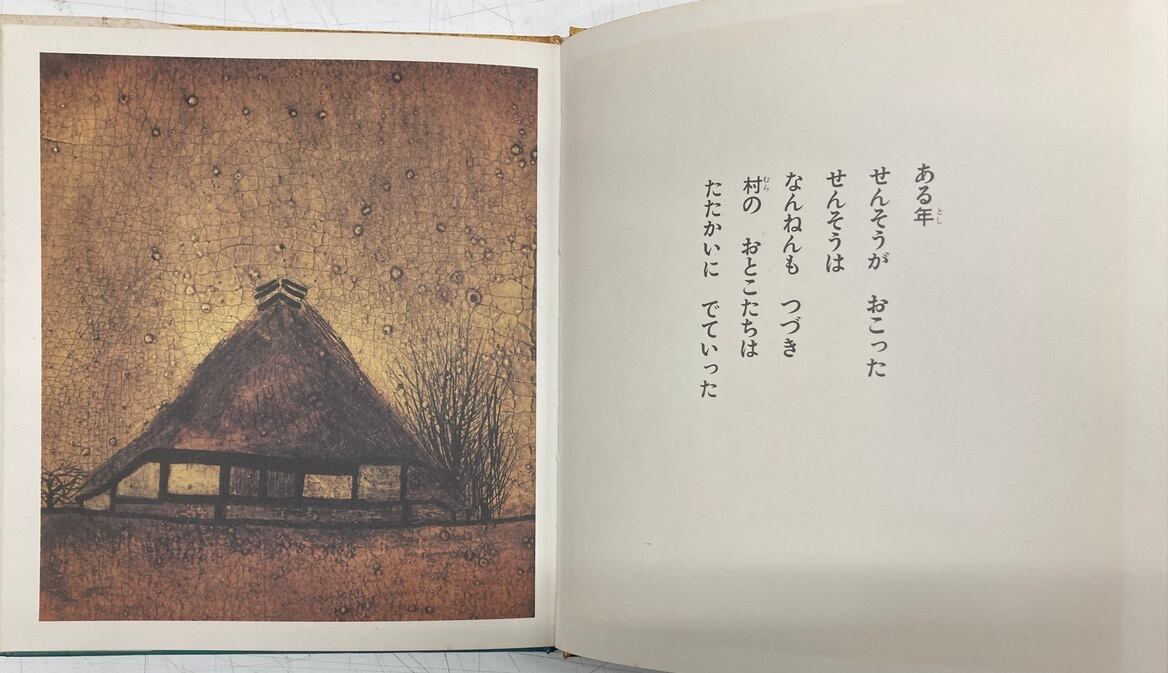 ある年
せんそうが　おこった
せんそうは
なんねんも　つづき
村の　おとこたちは
たたかいに　でていった